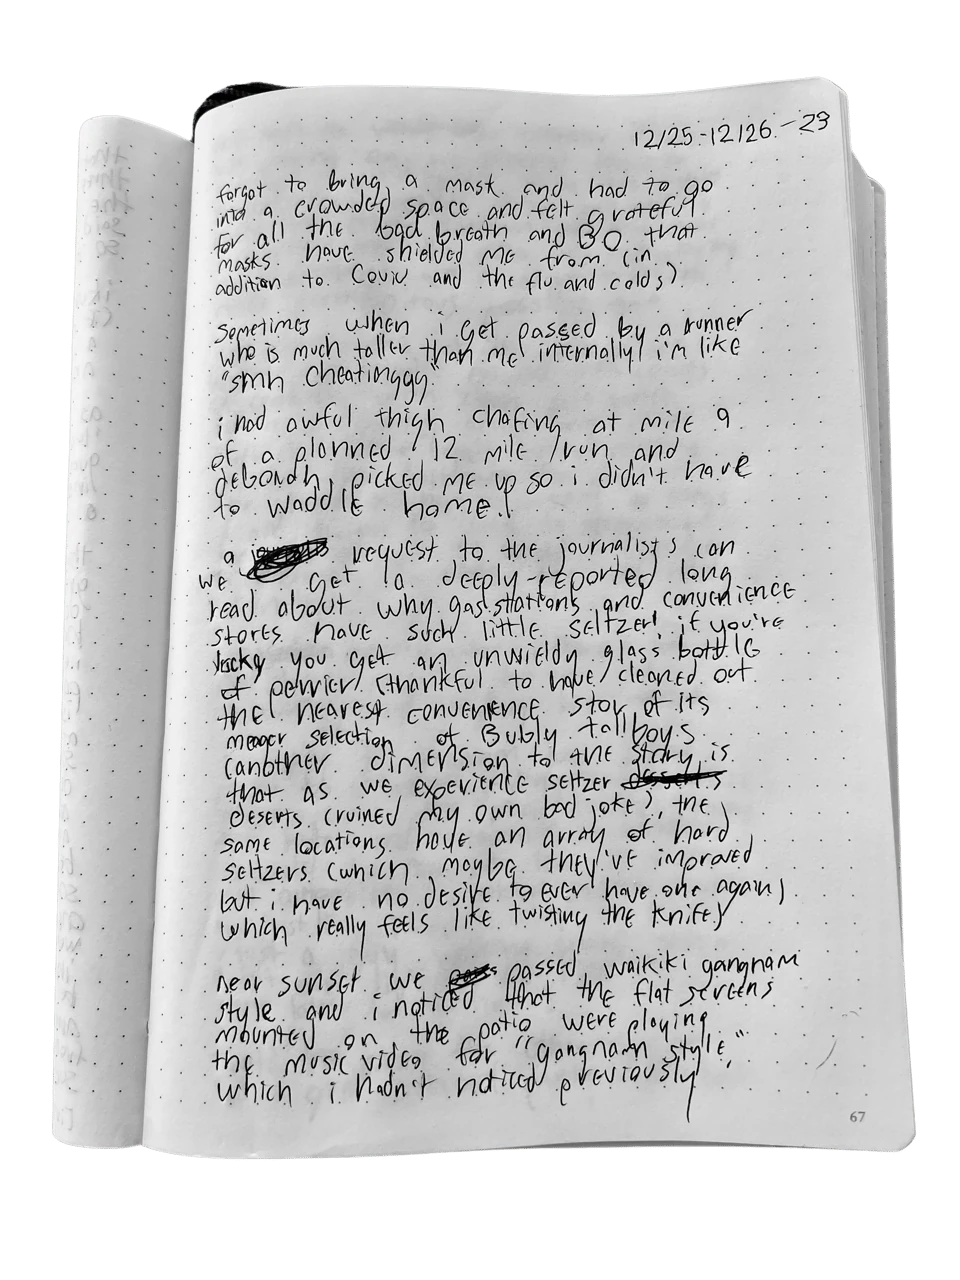 12/25-12/26-23
forgot to bring a mask and had to go
into a crowded space and felt grateful
for all the bad breath and BO that
masks have shielded me from (in
addition to Covid and the flu and colds)
sometimes when i get passed by a runner
who is much taller than me internally i'm like
"smh cheatinggg"
i had awful thigh chafing at mile 9
of a planned 12 mile run and
deborah picked me up so i didn't have
to waddle home!
a request to the journalists can
we get a deeply-reported long
read about why gas stations and convenience
stores have such little seltzer! if you're
lucky you get an unwieldy glass bottle
of perrier (thankful to have cleaned out
the nearest convenience stor of its
meager selection of Bubly tallboys
(another dimension to the story is
that as we experience seltzer
deserts (ruined my own bad joke), the
same locations have an array of hard
seltzers (which maybe they've improved
but i have no desire to ever have one again)
which really feels like twisting the knife)
near sunset we passed waikiki gangnam
style and i noticed that the flat screens
mounted on the patio were playing
the music video for "gangnam style,"
which i hadn't noticed previously
67